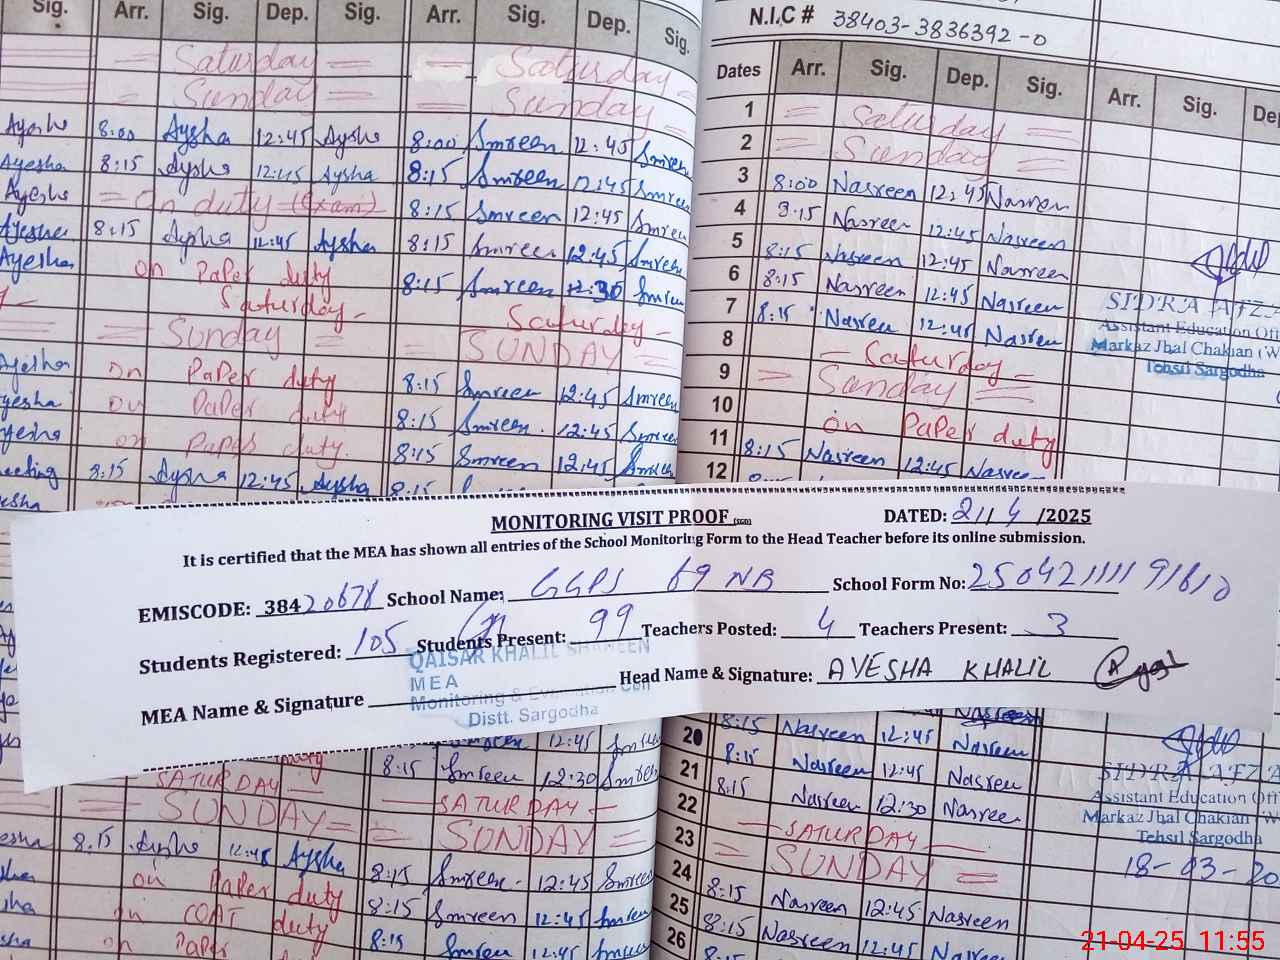 Sig. Arr. Sig. Dep. Sig. Arr. Sig. Dep. Sig.
= Saturday = = Saturday
= Sunday = = Sunday =
Ayesha 8:00 Aysha 12:45 Aysha 8:00 Smreen 12:45 Smreen
Ayesha 8:15 Aysha 12:45 Aysha 8:15 Smreen 12:45 Smreen
Ayesha = On duty (Exam) 8:15 Smreen 12:45 Smreen
Ayesha 8:15 Aysha 12:45 Aysha 8:15 Smreen 12:45 Smreen
Ayesha on PaPer duty 8:15 Smreen 12:30 Smreen
Saturday - Saturday -
= Sunday = = SUNDAY =
Ayesha on PaPer duty 8:15 Smreen 12:45 Smreen
Ayesha on PaPer duty 8:15 Smreen. 12:45 Smreen
Ayesha on Paper duty. 8:15 Smreen 12:45 Smreen
meeting 8:15 Aysha 12:45 Aysha 8:15
N.I.C # 38403-3836392-0
Dates Arr. Sig. Dep. Sig. Arr. Sig. Dep
1 = Saturday =
2 = Sunday =
3 8:00 Nasreen 12:45 Nasreen
4 8:15 Nasreen 12:45 Nasreen
5 8:15 Nasreen 12:45 Nasreen
6 8:15 Nasreen 12:45 Nasreen
7 8:15 Nasreen 12:45 Nasreen
8 - Saturday -
9 = Sunday =
10 on PaPer duty
11 8:15 Nasreen 12:45 Nasreen
12
SIDRA AFZA
Assistant Education Offi
Markaz Jhal Chakian (W
Tehsil Sargodha
MONITORING VISIT PROOF (SGD) DATED: 21/4/2025
It is certified that the MEA has shown all entries of the School Monitoring Form to the Head Teacher before its online submission.
EMISCODE: 38420678 School Name: GGPS 69 NB School Form No: 25042111191610
Students Registered: 105 Students Present: 99 Teachers Posted: 4 Teachers Present: 3
MEA Name & Signature Head Name & Signature: AYESHA KHALIL
QAISAR KHALIL SHAHEEN
MEA
Monitoring & Evaluation Cell
Distt. Sargodha
Smreen 12:45 Smreen
8:15 Smreen 12:30 Smreen
SATURDAY - - SATURDAY -
= SUNDAY = = SUNDAY =
8:15 Aysha 12:45 Aysha 8:15 Smreen. 12:45 Smreen
on PaPer duty 8:15 Smreen 12:45 Smreen
on COAT duty 8:15 Smreen 12:45 Smreen
on PaPer
20 8:15 Nasreen 12:45 Nasreen
21 8:15 Nasreen 12:45 Nasreen
22 8:15 Nasreen 12:30 Nasreen
23 - SATURDAY -
24 = SUNDAY =
25 8:15 Nasreen 12:45 Nasreen
26 8:15 Nasreen 12:45 Nasreen
SIDRA AFZA
Assistant Education Offi
Markaz Jhal Chakian (W
Tehsil Sargodha
18-03-20
21-04-25 11:55